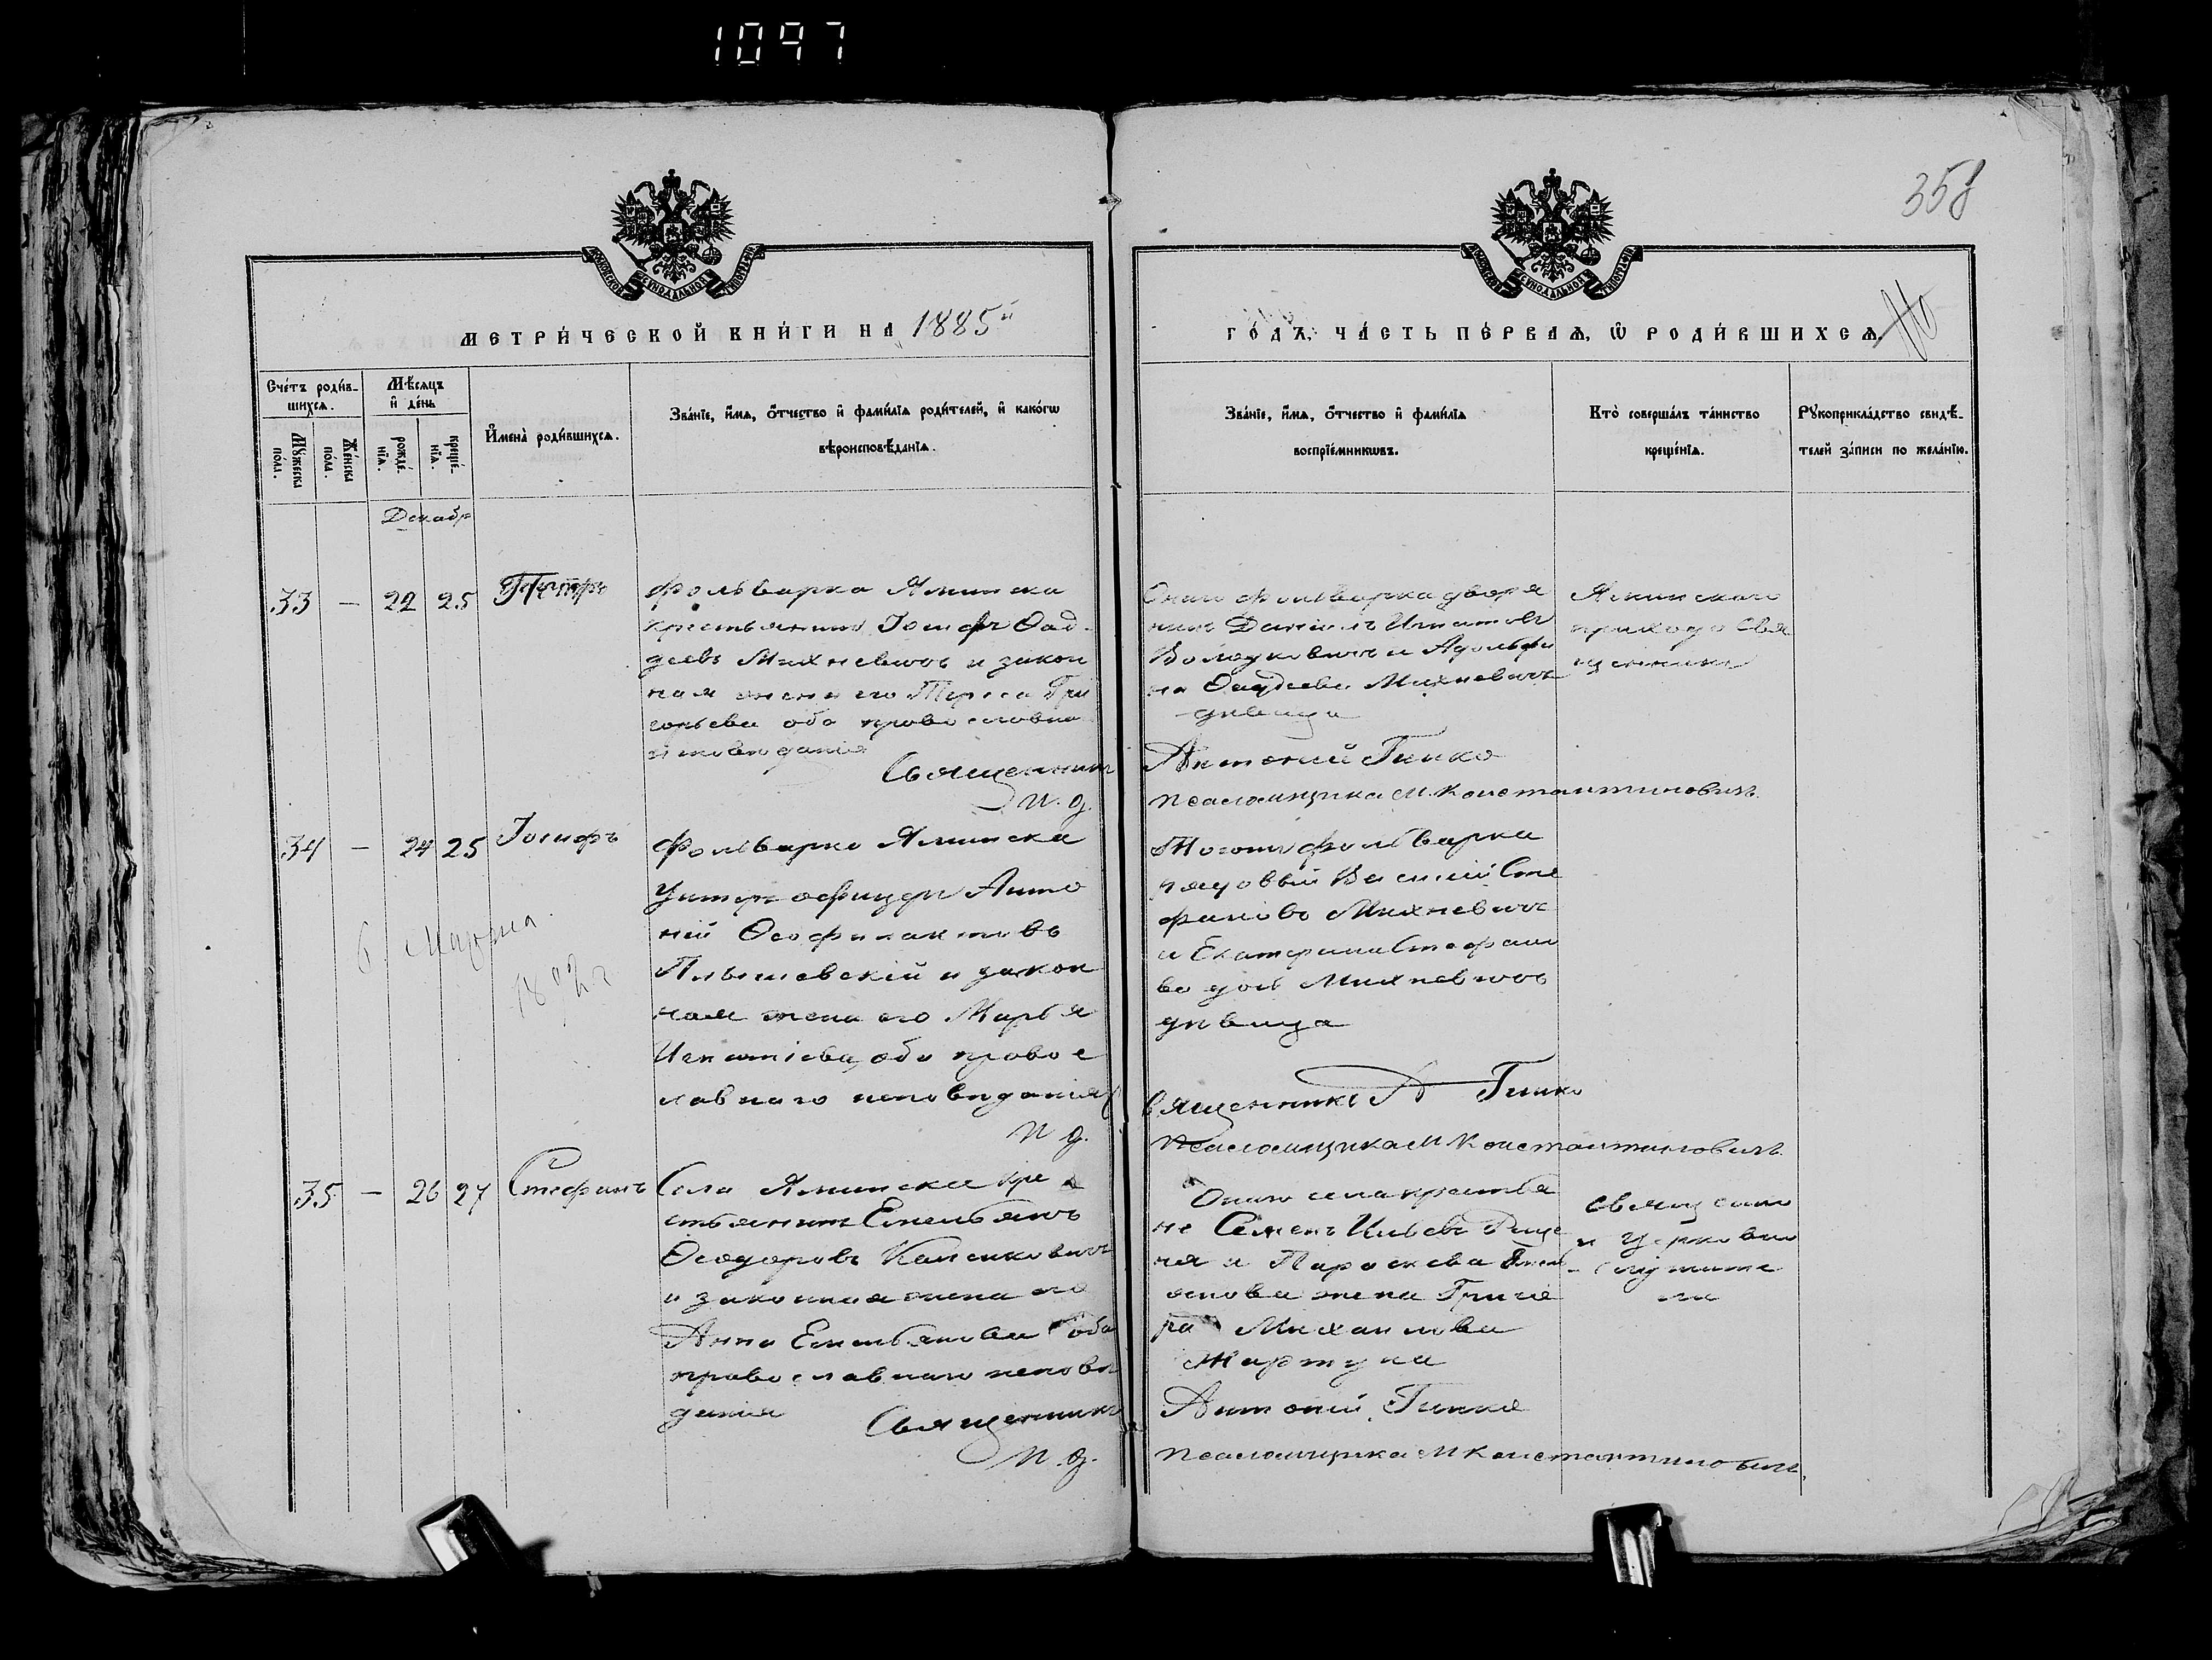 1097
358
МЕТРИ́ЧЕСКОЙ КНИ́ГИ НА 1885й
ГО́ДЪ, ЧА́СТЬ ПЕ́РВАѦ, Ѡ҆ РОДИ́ВШИХСѦ.
Сче́тъ роди́в-
шихсѧ.
Мѣ́сѧцъ
и҆ де́нь
Мꙋ́жеска
по́ла.
Же́нска
по́ла.
рожде́-
нїѧ.
креще́-
нїѧ.
И҆мена̀ роди́вшихсѧ.
Зва́нїе, и҆́мѧ, ѻ҆́тчество и҆ фами́лїѧ роди́телей, и҆ како́гѡ
вѣроисповѣ́данїѧ.
Зва́нїе, и҆́мѧ, ѻ҆́тчество и҆ фами́лїѧ
воспрїе́мникѡвъ.
Кто̀ соверша́лъ та́инство
креще́нїѧ.
Рꙋкоприкла́дство свидѣ́-
телей за́писи по жела́нїю.
Декабр
33 — 22 25 Петръ
Фольварка Яминска
крестьянинъ Іосифъ Ѳад-
деевъ Михневичъ и закон
ная жена его Григо
рьева оба православна
исповѣданія
Священникъ
И. д.
Онаго фольварка дворя
нинъ Даніилъ Игнатов
и Адольфи
на Ѳаддеева Михневичъ
дѣвица
Антоній Гинко
псаломщика М. Константиновичъ.
Яминскаго
прихода Свя
щенникъ
34 — 24 25 Іосифъ
Фольварка Яминска
Унтеръ офицеръ Анто
ній Ѳеофилактовъ
и закон
ная жена его Марья
Игнатіева, оба правос
лавнаго исповѣданія
И д.
6 Марта
Тогоже фольварка
рядовый Василій Сте
фановъ Михневичъ
и Екатерина Стефано
ва дочь Михневичъ
дѣвица
Священникъ А Гинко
Псаломщика М Константиновичъ.
35 — 26 27 Стефанъ
Села Яминска кре
стьянинъ Емельянъ
Ѳеодоровъ
и законная жена его
Анна Емельянова оба
православнаго исповѣ
данія
Священникъ
И. д.
Онаго села крестья
не Семенъ
ня и Параскева
жена
Михаилова
Антоній Гинко
псаломщика М Константиновичъ.
священно
и церковно
служите
ли